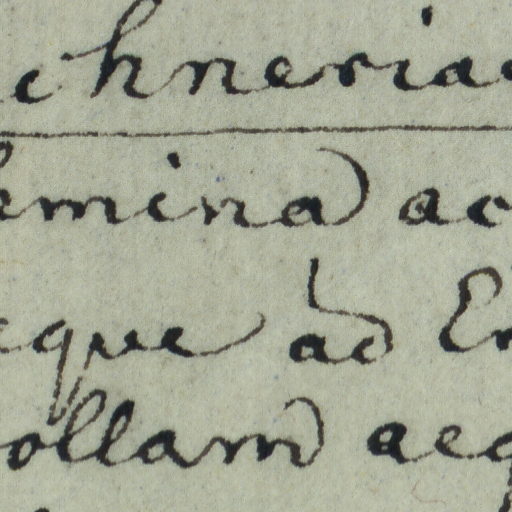 chneria
emina ac
eque ad En
ollam aeq